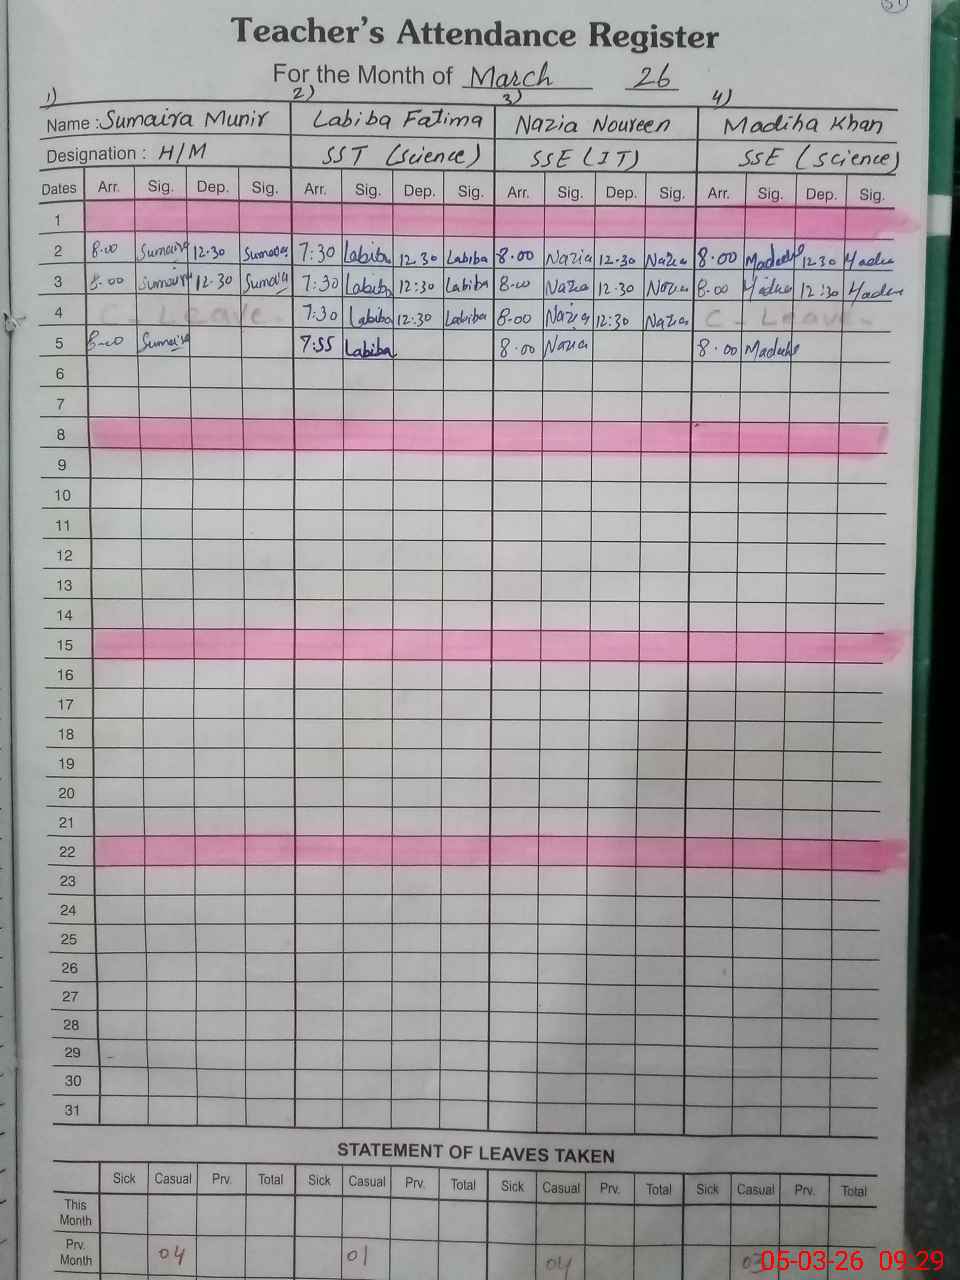 Teacher's Attendance Register
For the Month of March 26
1) 2) 3) 4)
Name : Sumaira Munir Labiba Fatima Nazia Noureen Madiha Khan
Designation : H/M SST (Science) SSE (IT) SSE (Science)
Dates Arr. Sig. Dep. Sig. Arr. Sig. Dep. Sig. Arr. Sig. Dep. Sig. Arr. Sig. Dep. Sig.
1
2 8.00 Sumaira 12.30 Sumaira 7:30 Labiba 12.30 Labiba 8.00 Nazia 12.30 Nazia 8.00 12.30
3 8.00 Sumaira 12.30 Sumaira 7:30 Labiba 12:30 Labiba 8.00 Nazia 12.30 Nazia 8.00 12:30
4 C - Leave. 7:30 Labiba 12:30 Labiba 8.00 Nazia 12:30 Nazia C - Leave -
5 8.00 Sumaira 7:55 Labiba 8.00 Nazia 8.00
6
7
8
9
10
11
12
13
14
15
16
17
18
19
20
21
22
23
24
25
26
27
28
29 -
30
31
STATEMENT OF LEAVES TAKEN
Sick Casual Prv. Total Sick Casual Prv. Total Sick Casual Prv. Total Sick Casual Prv. Total
This
Month
Prv.
Month 04 01 04
05-03-26 09:29